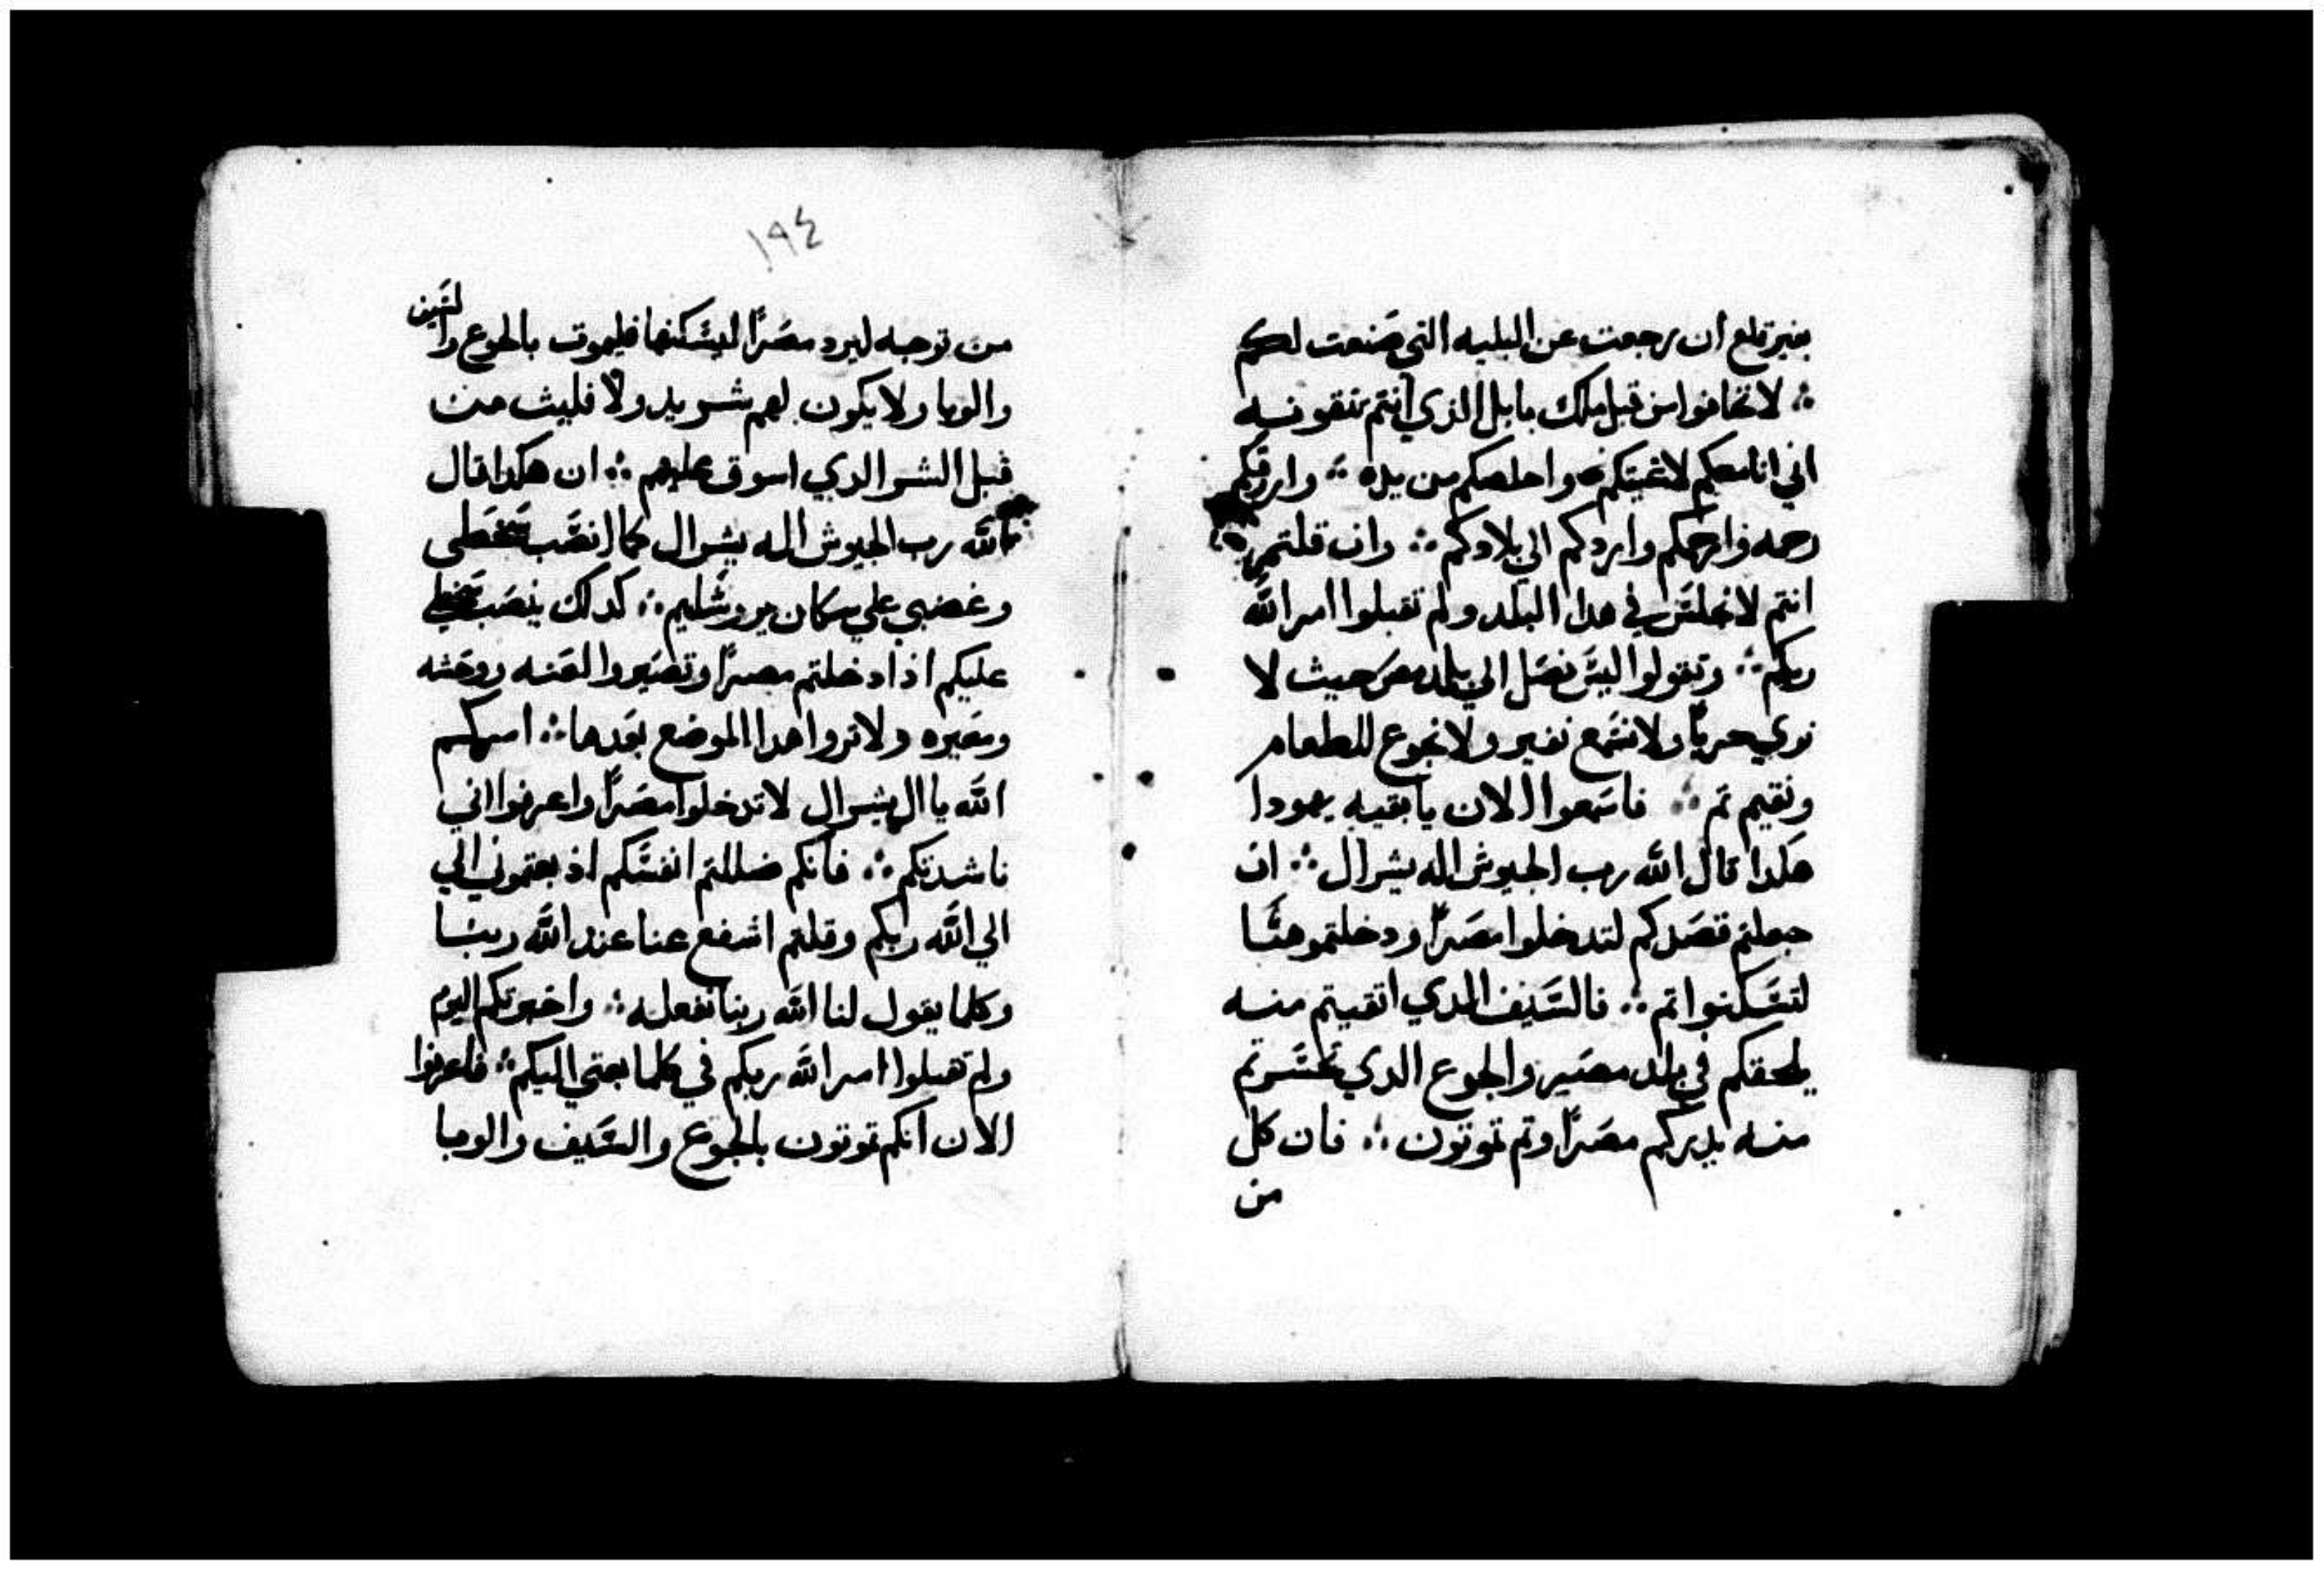 بغير قلع ان رجعت عن البليه التي صَنعت لكم
؞ لا تخافوا من قبل ملك بابل الذي انتم تتقونه
اني انا معكم لاغيتكم واخلصكم من يده ؞ وارزقكم
رحمه وارحمكم واردكم الي بلادكم ؞ وان قلتم
انتم لا نجلسَ في هدا البلد ولم تقبلوا امر الله
ربكم ؞ وتقولوا ليسَ نصَل الي بلد مصَر حيث لا
نري حربًا ولا نسَمع نفير ولا نجوع للطعام
ونقيم تم ؞ فاسَمعوا الان يا بقيه يهودا
هكدا قال الله رب الجيوش اله يسرال ؞ ان
جعلتم قصَدكم لتدخلوا مصَرًا ودخلتموهَا
لتسَكنوا تم ؞ فالسَيف الدي اتقيتم منه
يلحقكم في بلد مصَير والجوع الدي تحسَرتم
منه يدرككم مصَرًا وتم تموتون ؞ فان كل
من
١٩٤
من توجه ليرد مصَرًا ليسَكنها فليموت بالجوع والسَيف
والوبا ولا يكون لهم شريد ولا فليت من
قبل الشر الدي اسوق عليهم ؞ ان هكدا قال
الله رب الجيوش اله يسرال كما انصَب سَخطي
وغضبي علي سكان يروشَليم ؞ كدلك ينصَب سَخطي
عليكم ادا دخلتم مصرًا وتصَيروا لعَنه ووحَشه
ومعَيره ولا تروا هدا الموضع بعَدها ؞ امركم
الله يا ال يسرال لا تدخلوا مصَرًا واعرفوا اني
ناشدتكم ؞ فانكم ضللتم انفسَكم اد بعتموني الي
الي الله ربكم وقلتم اشفع عنا عند الله ربنا
وكلما يقول لنا الله ربنا نفعله ؞ واخبرتكم اليوم
ولم تقبلوا امر الله ربكم في كلما بعتني اليكم ؞ فاعرفوا
الان انكم تموتون بالجوع والسَيف والوبا